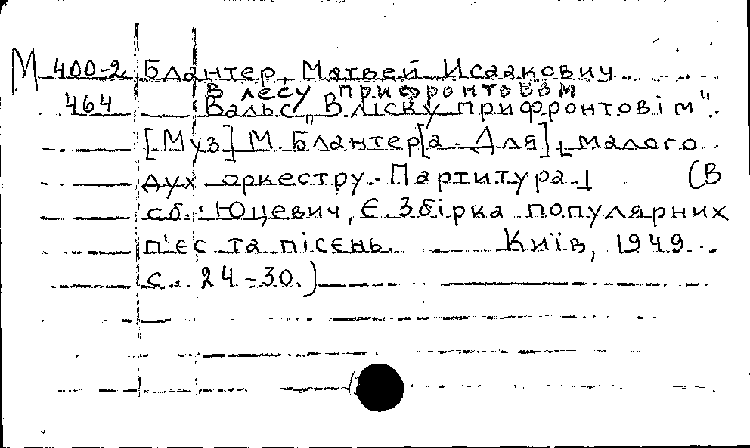 М 400-2 Блантер, Матвей Исаакович
В лесу прифронтовом
464 Вальс „В ліску прифронтовім".
[Муз] М. Блантер[а. Для] малого
дух оркестру. Партитура] (В
сб.: Юцевич, Є. Збірка популярних
п'єс та пісень. Київ, 1949.
с. 24-30.)